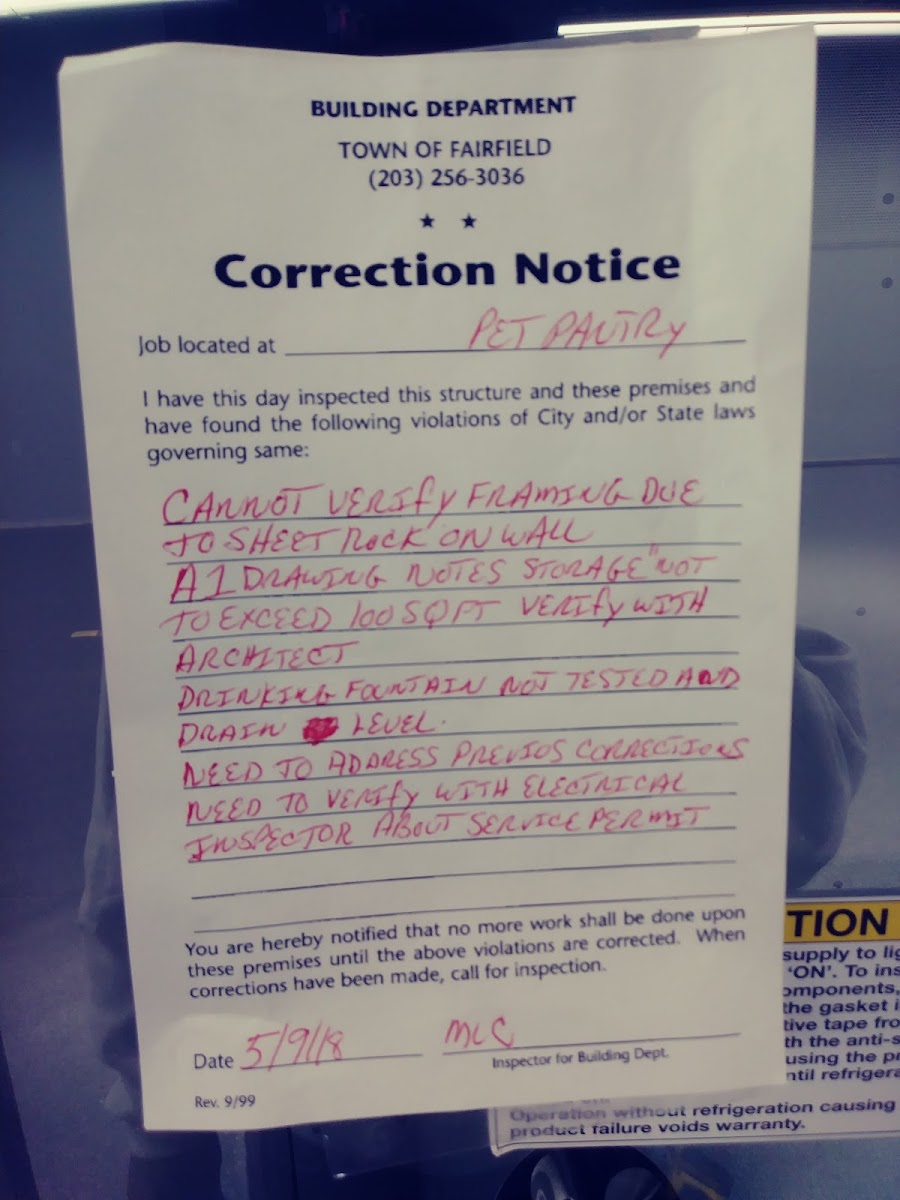 BUILDING DEPARTMENT
TOWN OF FAIRFIELD
(203) 256-3036
★ ★
Correction Notice
Job located at PET PANTRY
I have this day inspected this structure and these premises and
have found the following violations of City and/or State laws
governing same:
CANNOT VERIFY FRAMING DUE
TO SHEET ROCK ON WALL
A1 DRAWING NOTES STORAGE "NOT
TO EXCEED 100 SQ FT VERIFY WITH
ARCHITECT
DRINKING FOUNTAIN NOT TESTED AND
DRAIN LEVEL.
NEED TO ADDRESS PREVIOS CORRECTIONS
NEED TO VERIFY WITH ELECTRICAL
INSPECTOR ABOUT SERVICE PERMIT
You are hereby notified that no more work shall be done upon
these premises until the above violations are corrected. When
corrections have been made, call for inspection.
Date 5/9/18 MLC
Inspector for Building Dept.
Rev. 9/99
TION
supply to lig
'ON'. To ins
omponents,
the gasket i
tive tape fro
th the anti-s
using the pr
ntil refrigera
Operation without refrigeration causing
product failure voids warranty.